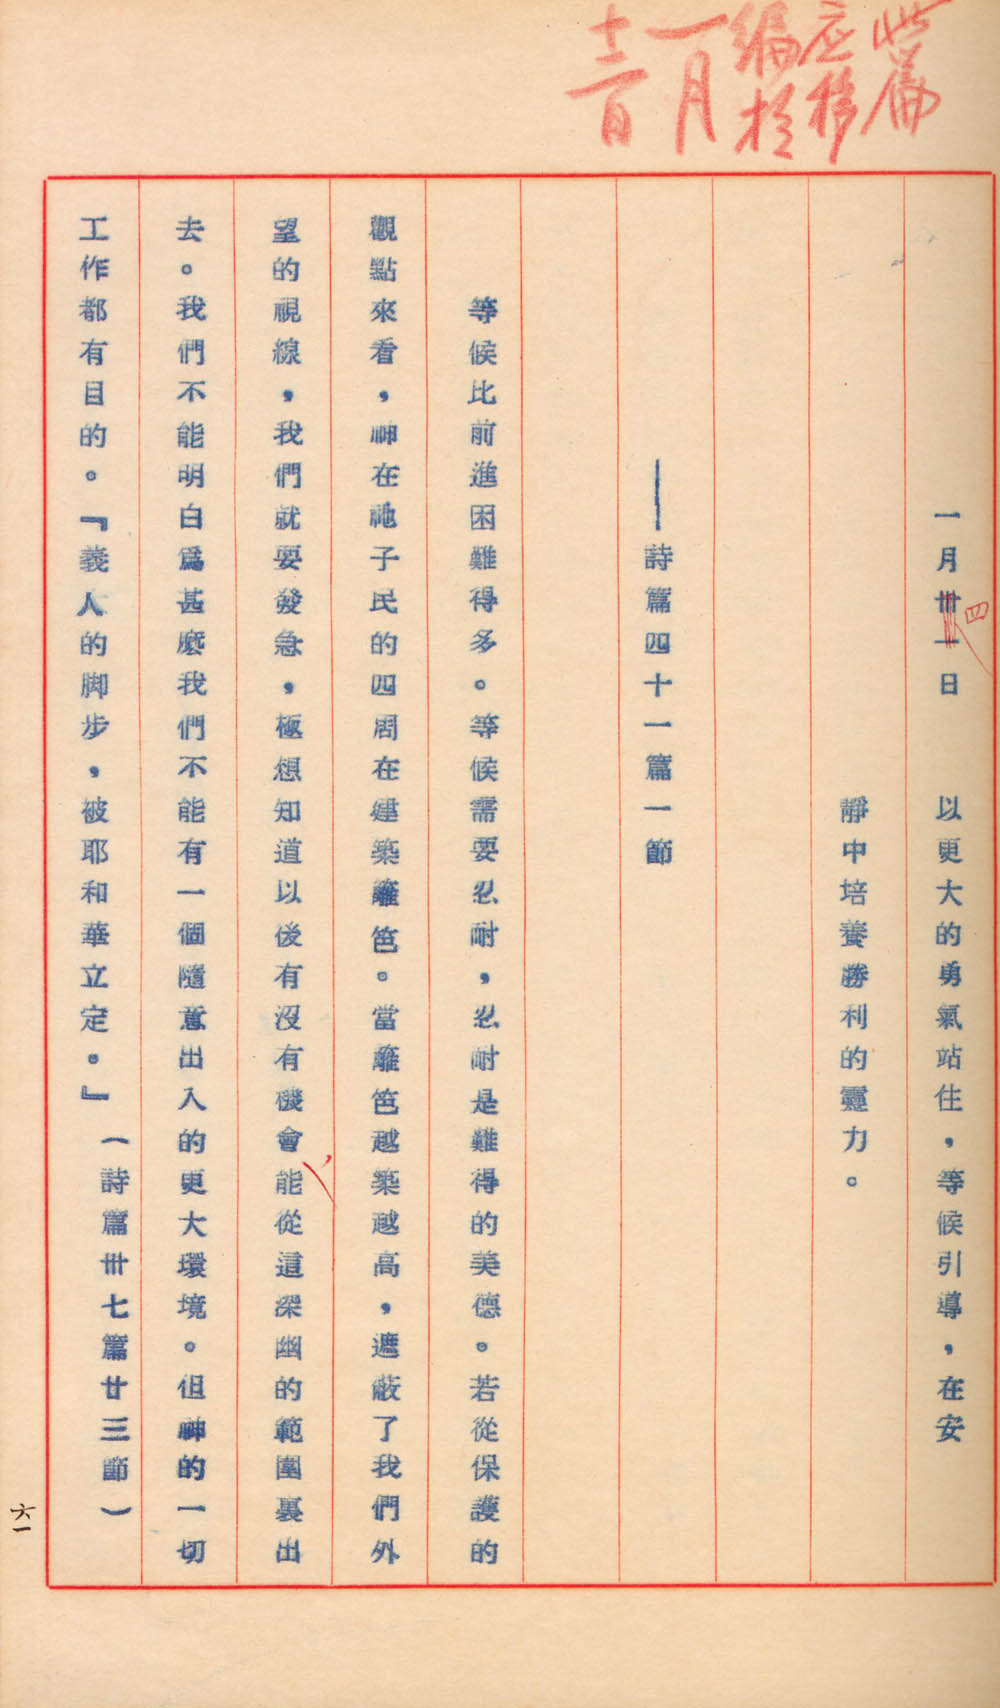 此篇
应移
编於
一月
一月卅一日　以更大的勇氣站住，等候引導，在安
四
靜中培養勝利的靈力。
——詩篇四十一篇一節
等候比前進困難得多。等候需要忍耐，忍耐是難得的美德。若從保護的
觀點來看，神在祂子民的四周在建築籬笆。當籬笆越築越高，遮蔽了我們外
望的視線，我們就要發急，極想知道以後有沒有機會能從這深幽的範圍裏出
去。我們不能明白爲甚麼我們不能有一個隨意出入的更大環境。但神的一切
工作都有目的。『義人的脚步，被耶和華立定。』（詩篇卅七篇廿三節）
六一